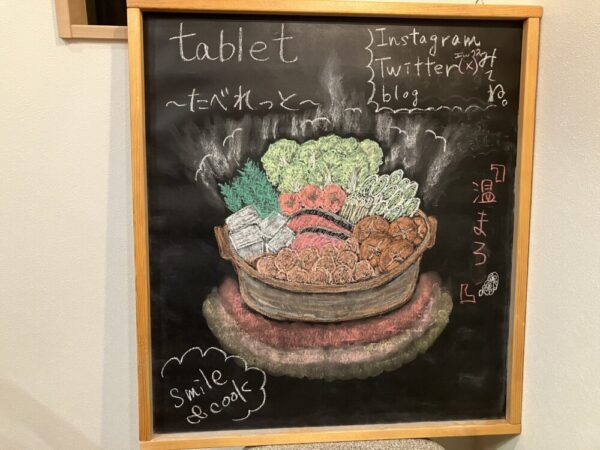 tablet
～たべれっと～
Instagram
Twitter(X)
blog
みてね。
『温まろ』
smile
&cook